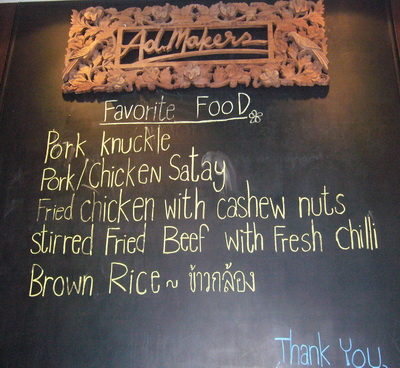 Ad.Makers
Favorite Food
Pork knuckle
Pork/Chicken Satay
Fried chicken with cashew nuts
stirred Fried Beef with Fresh chilli
Brown Rice ~ ข้าวกล้อง
Thank You